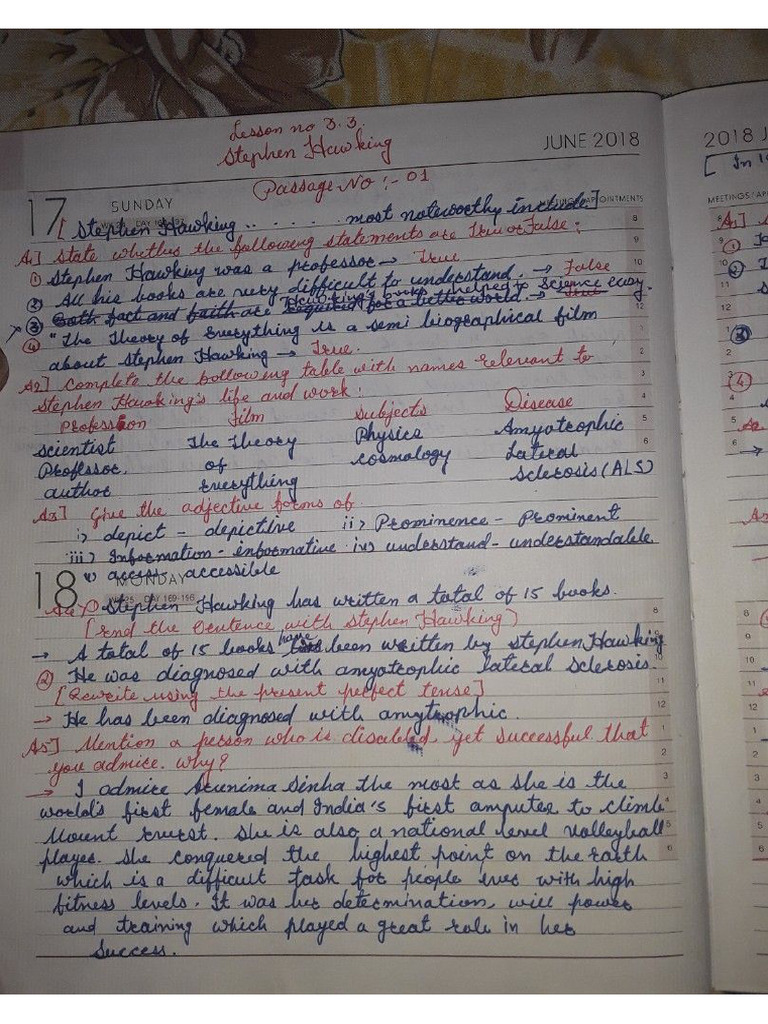 Lesson no 3.3.
Stephen Hawking
JUNE 2018
Passage No :- 01
17 SUNDAY
[Stephen Hawking ........ most noteworthy include]
A1] State whether the following statements are True or False:
① Stephen Hawking was a professor → True
② All his books are very difficult to understand. → False
③ Hawking's helped to science easy.
④ "The Theory of Everything is a semi biographical film
about Stephen Hawking → True.
A2] Complete the following table with names relevant to
Stephen Hawking's life and work:
Profession Film Subjects Disease
scientist The Theory Physics Amyotrophic
Professor. of cosmology Lateral
author Everything Sclerosis (ALS)
A3] Give the adjective forms of
i) depict - depictive ii) Prominence - Prominent
iii) Information - informative iv) understand - understandable
v) access - accessible
18 MONDAY
WK 25 DAY 169-196
A4] ① Stephen Hawking has written a total of 15 books.
[end the sentence with Stephen Hawking)
→ A total of 15 books have been written by Stephen Hawking
② He was diagnosed with amyotrophic lateral sclerosis.
[Rewrite using the present perfect tense]
→ He has been diagnosed with amytrophic.
A5] Mention a person who is disabled, yet successful that
you admire. why?
→ I admire Arunima Sinha the most as she is the
world's first female and India's first amputee to climb
Mount Everest. She is also a national level volleyball
player. She conquered the highest point on the Earth
which is a difficult task for people even with high
fitness levels. It was her determination, will power
and training which played a great role in her
success.
2018 J
[ In
MEETINGS/AP